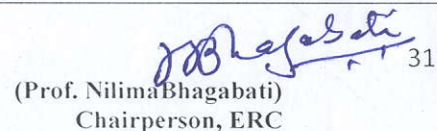 NBhagabati
31
(Prof. NilimaBhagabati)
Chairperson, ERC